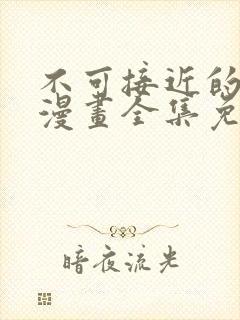 不可接近的
漫畫全集免
暗夜流光